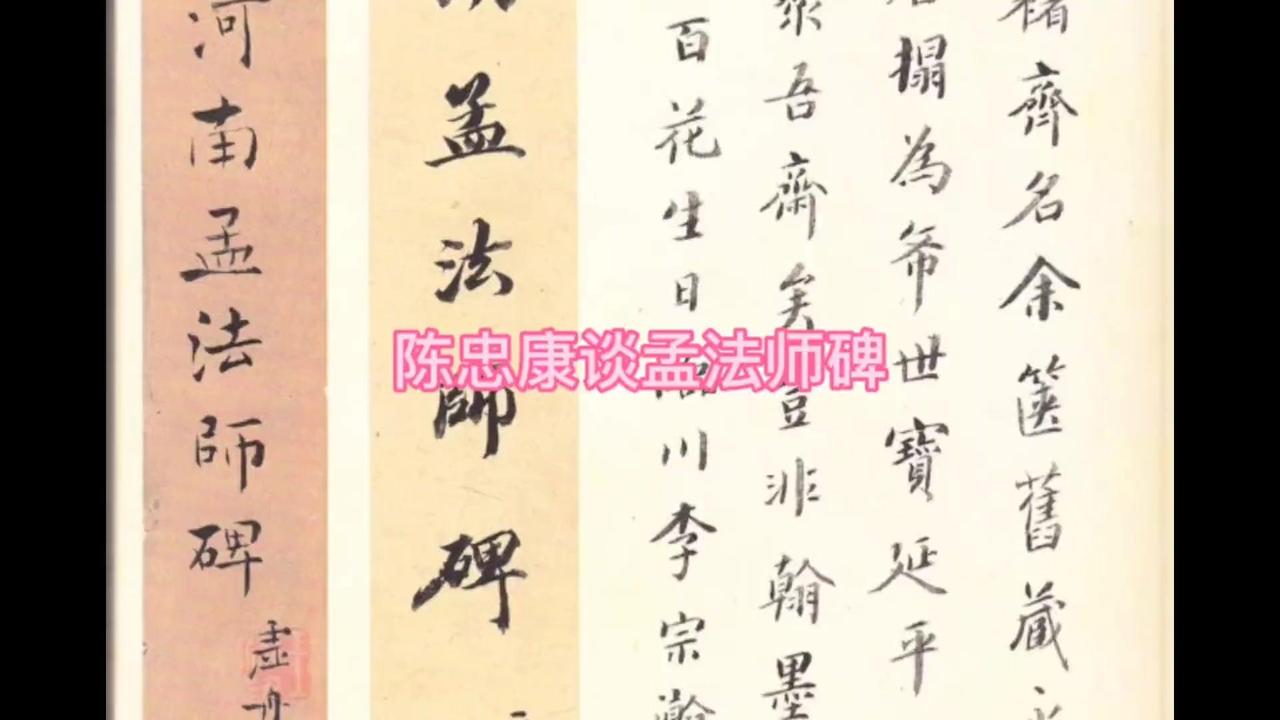 褚齊名余篋舊藏永
搨為希世寶延平
聚吾齋矣豈非翰墨
百花生日臨川李宗瀚
孟法師碑
河南孟法師碑
虛舟
陈忠康谈孟法师碑